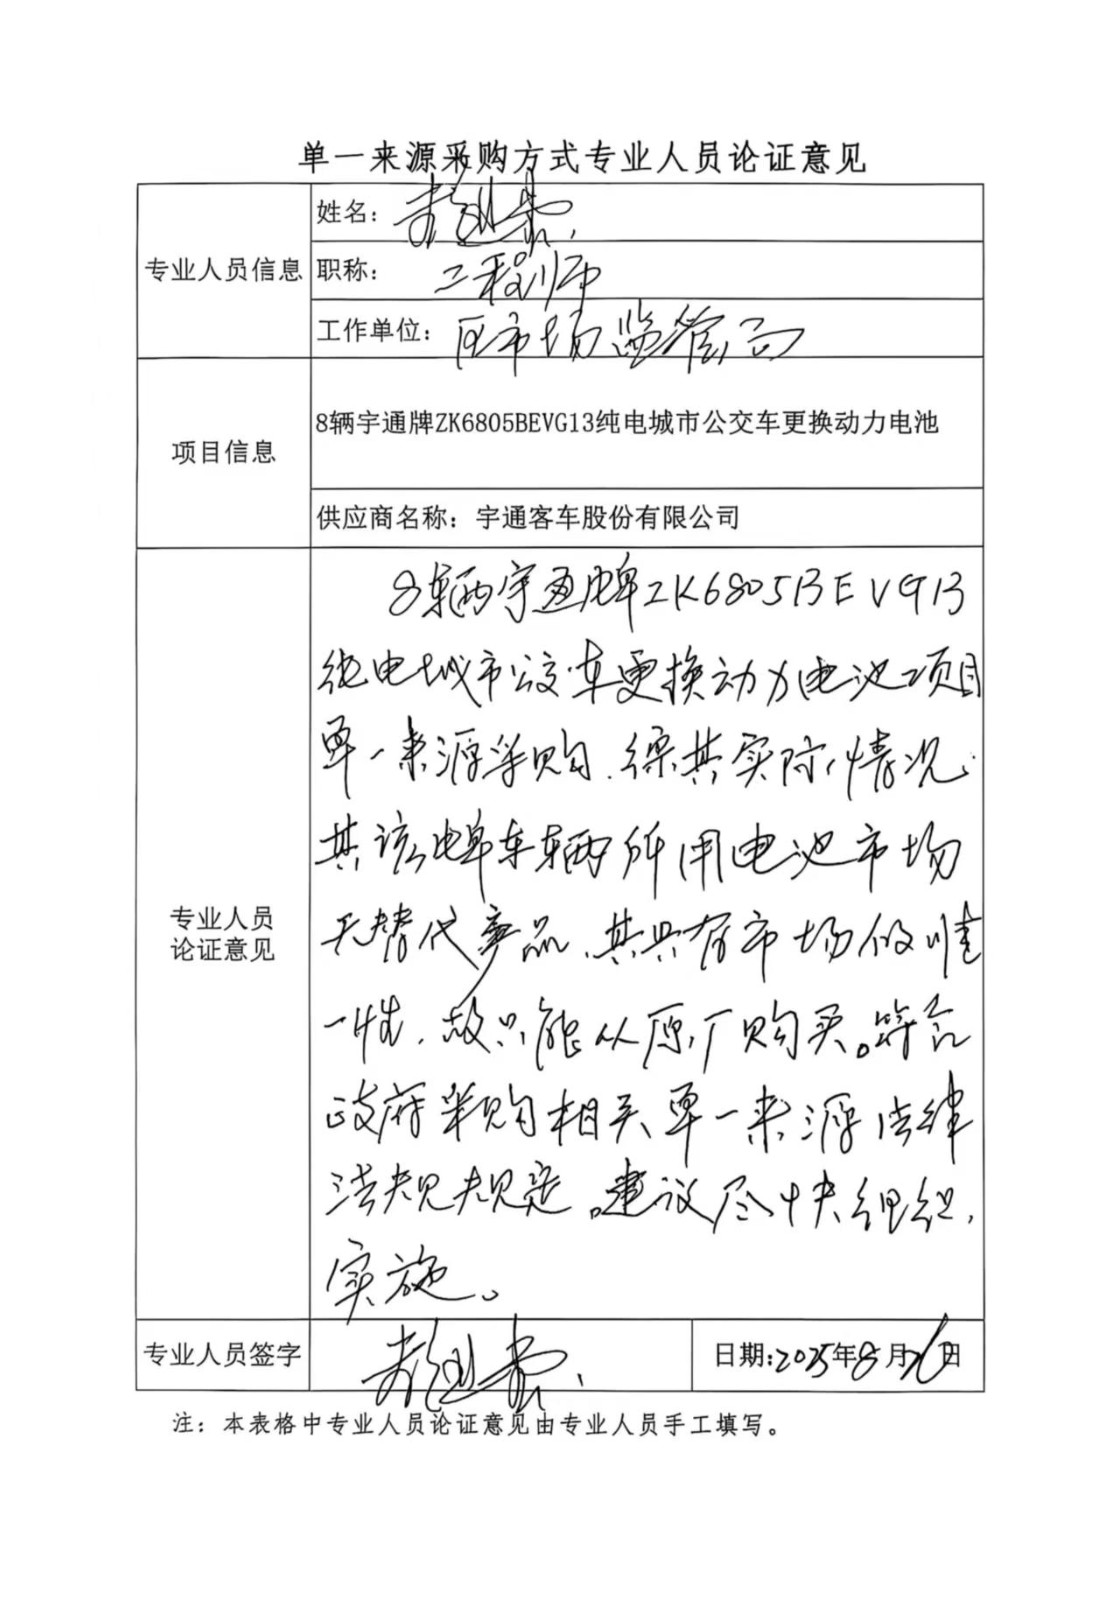 单一来源采购方式专业人员论证意见
专业人员信息
姓名：
职称： 工程师
工作单位： 区市场监管局
项目信息
8辆宇通牌ZK6805BEVG13纯电城市公交车更换动力电池
供应商名称：宇通客车股份有限公司
专业人员
论证意见
8辆宇通牌ZK6805BEVG13
纯电城市公交车更换动力电池项目
单一来源采购.综其实际情况.
其该牌车辆所用电池市场
无替代产品.其具有市场的唯
一性.故只能从原厂购买。符合
政府采购相关单一来源法律
法规规定。建议尽快组织.
实施。
专业人员签字
日期:2025年8月 日
注：本表格中专业人员论证意见由专业人员手工填写。